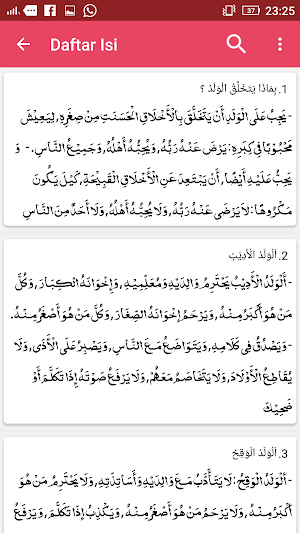 37 23:25
Daftar Isi
1. بِمَاذَا يَتَخَلَّقُ الْوَلَدُ ؟
-يَجِبُ عَلَى الْوَلَدِ أَنْ يَتَخَلَّقَ بِالْأَخْلَاقِ الْحَسَنَتِ مِنْ صِغَرِهِ, لِيَعِيْشَ
مَحْبُوْبًا فِي كِبَرِهِ: يَرْضَ عَنْهُ رَبُّهُ, وَيُحِبُّهُ أَهْلُهُ, وَجَمِيْعُ النَّاسِ. - وَ
يَجِبُ عَلَيْهِ أَيْضًا, أَنْ يَبْتَعِدَ عَنِ الْأَخْلَاقِ الْقَبِيْحَةِ, كَيْلَ يَكُوْنَ
مَكْرُوْهًا: لَا يَرْضَى عَنْهُ رَبُّهُ, وَلَا يُحِبُّهُ أَهْلُهُ, وَلَا أَحَدٌ مِنَ النَّاسِ
2. اَلْوَلَدُ الْأَدِيْبُ
-اَلْوَلَدُ الْأَدِيْبُ يَحْتَرِمُ وَالِدَيْهِ وَمُعَلِّمِيْهِ, وَإِخْوَانَهُ الْكِبَارَ, وَكُلَّ
مَنْ هُوَ أَكْبَرُ مِنْهُ, وَيَرْحَمُ إِخْوَانَهُ الصِّغَارَ, وَكُلَّ مَنْ هُوَ أَصْغَرُ مِنْهُ.
-وَيَصْدُقُ فِي كَلَامِهِ, وَيَتَوَاضَعُ مَعَ النَّاسِ, وَيَصْبِرُ عَلَى الْأَذَى, وَلَا
يُقَاطِعُ الْأَوْلَادَ, وَلَا يَتَخَاصَمُ مَعَهُمْ, وَلَا يَرْفَعُ صَوْتَهُ إِذَا تَكَلَّمَ أَوْ
ضَحِيْكَ
3. اَلْوَلَدُ الْوَقِحُ
-اَلْوَلَدُ الْوَقِحُ: لَا يَتَأَدَّبُ مَعَ وَالِدَيْهِ وَأَسَاتِذَتِهِ, وَلَا يَحْتَرِمُ مَنْ هُوَ
أَكْبَرُ مِنْهُ, وَلَا يَرْحَمُ مَنْ هُوَ أَصْغَرُ مِنْهُ, وَيَكْذِبُ إِذَا تَكَلَّمَ, وَيَرْفَعُ